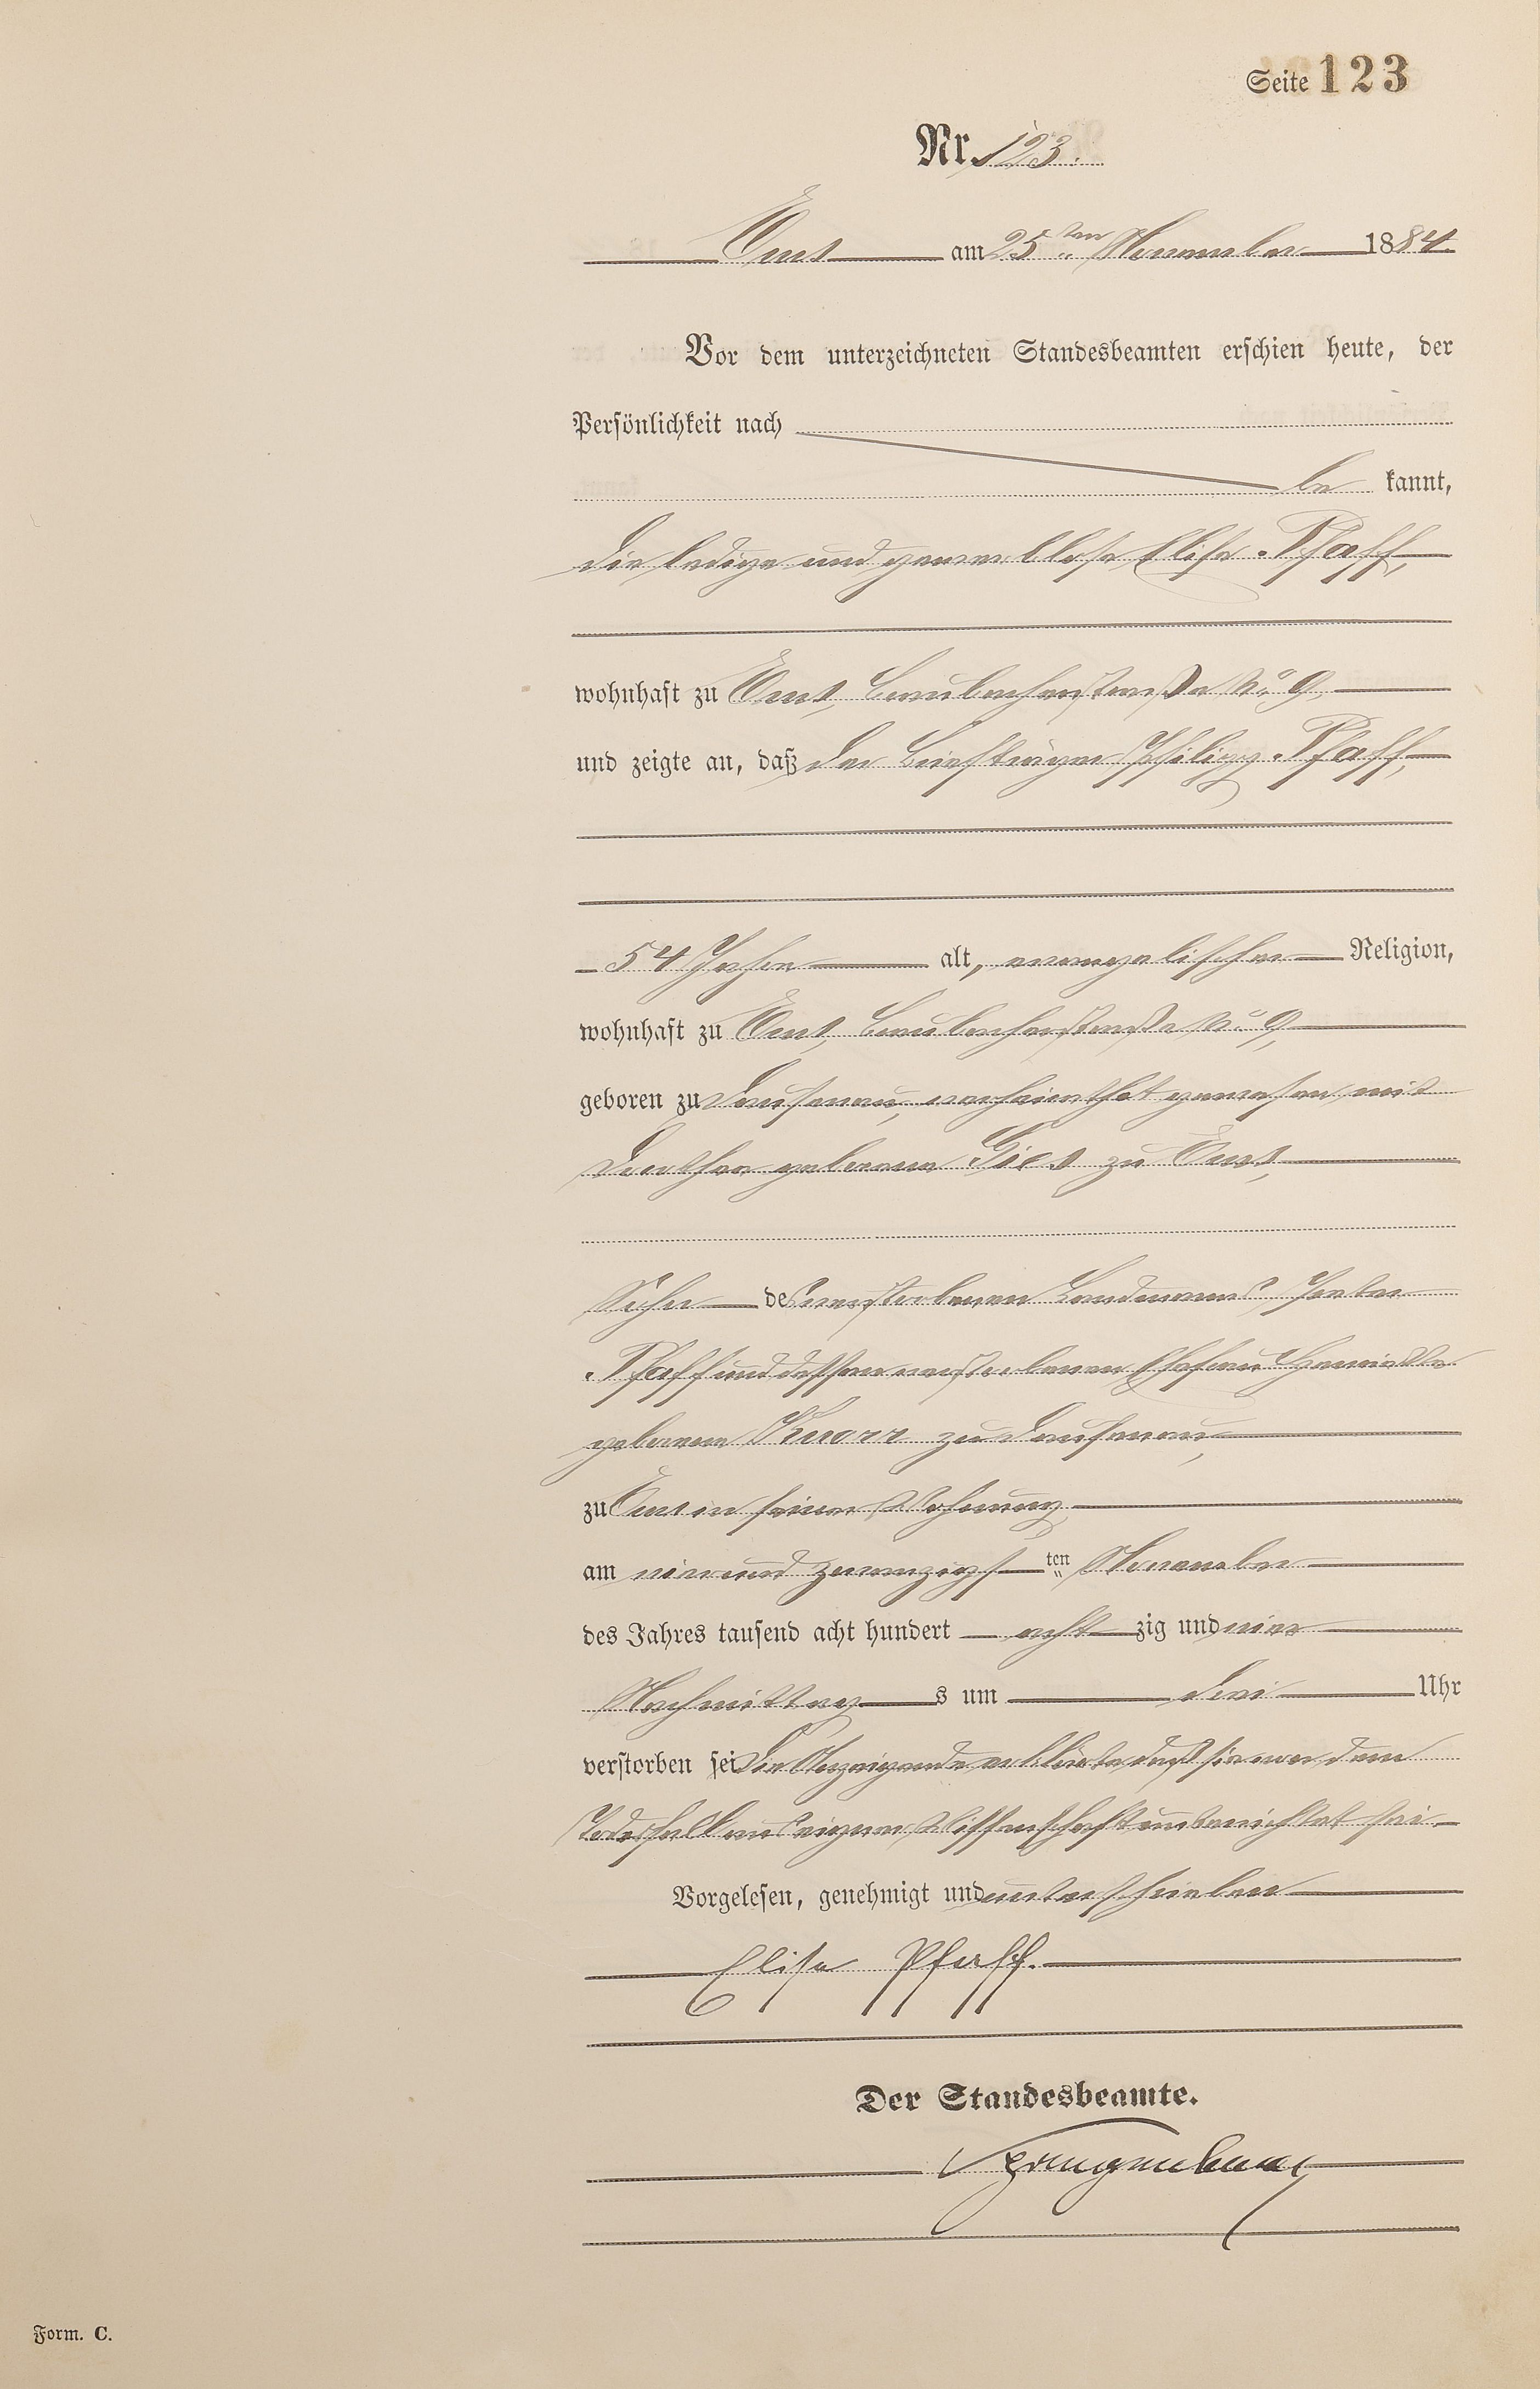 Seite 123
Nr. 123.
Ems am 25ten November 1884
Vor dem unterzeichneten Standesbeamten erschien heute, der
Persönlichkeit nach
be kannt,
die ledige und gewerblose Elise Pfaff,
wohnhaft zu Ems, Braubacherstraße No 9,
und zeigte an, daß der Briefträger Philipp Pfaff,
54 Jahre alt, evangelischer Religion,
wohnhaft zu Ems, Braubacherstraße No 9,
geboren zu Dausenau, verheirathet gewesen mit
Dorthea geborene Gies zu Ems,
Sohn des verstorbenen Landmanns Peter
Pfaff und dessen verstorbenen Ehefrau Henriette
geborene Knorr zu Dausenau,
zu Ems in seiner Wohnung
am vierundzwanzigsten November
des Jahres tausend acht hundert acht zig und vier
Nachmittags um drei Uhr
verstorben sei Die Anzeigende erklärte daß sie von dem
Todesfall aus eigener Wissenschaft unterrichtet sei.
Vorgelesen, genehmigt und unterschrieben
Elise Pfaff.
Der Standesbeamte.
Form. C.